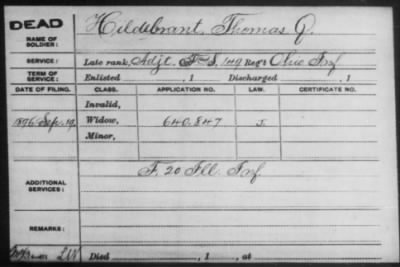 DEAD
NAME OF SOLDIER: Hildebrant, Thomas Q.
SERVICE: Late rank, Adjt. F&S, 149 Reg't Ohio Inf
TERM OF SERVICE: Enlisted , 1 Discharged , 1
DATE OF FILING. CLASS. APPLICATION NO. LAW. CERTIFICATE NO.
Invalid,
1896 Sep. 19. Widow, 640.847 J.
Minor,
ADDITIONAL SERVICES: F. 20 Ill. Inf.
REMARKS:
Died , 1 , at